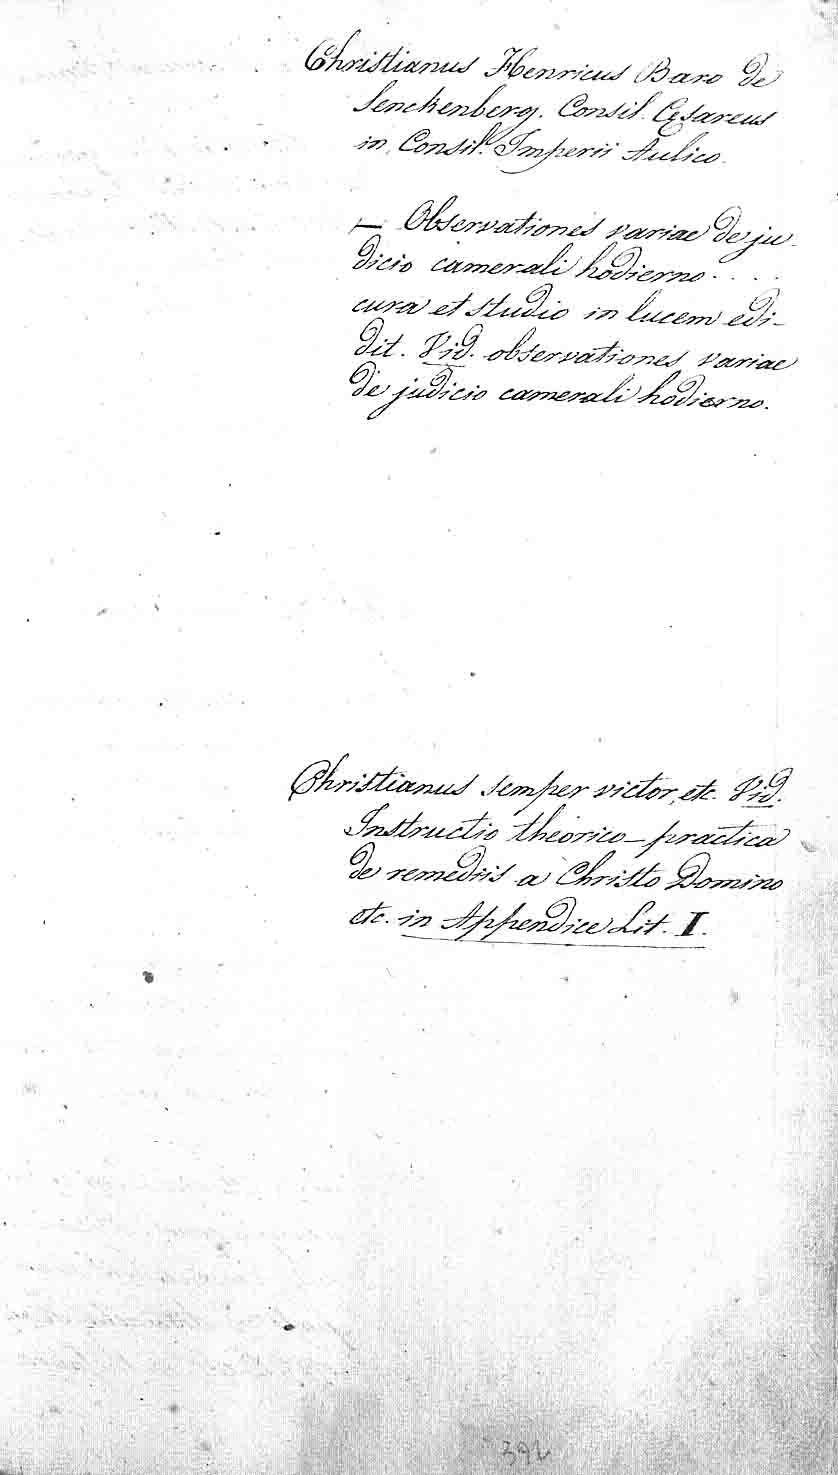 Christianus Henricus Baro de
Senckenberg. Consil. Cæsareus
in Consil. Imperii Aulico.
— Observationes variae de ju-
dicio camerali hodierno . . . .
cura et studio in lucem edi-
dit. Vid. observationes variae
de judicio camerali hodierno.
Christianus semper victor, etc. Vid.
Instructio theorico-practica
de remediis a Christo Domino
etc. in Appendice Lit. I.
392